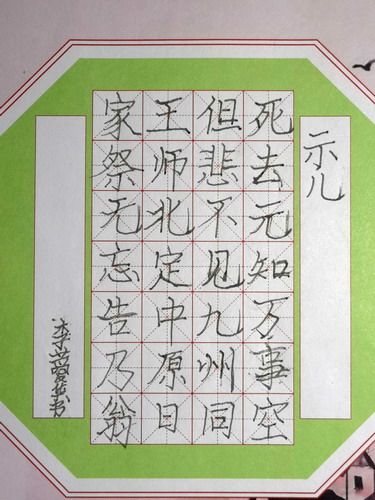 示儿
死去元知万事空
但悲不见九州同
王师北定中原日
家祭无忘告乃翁